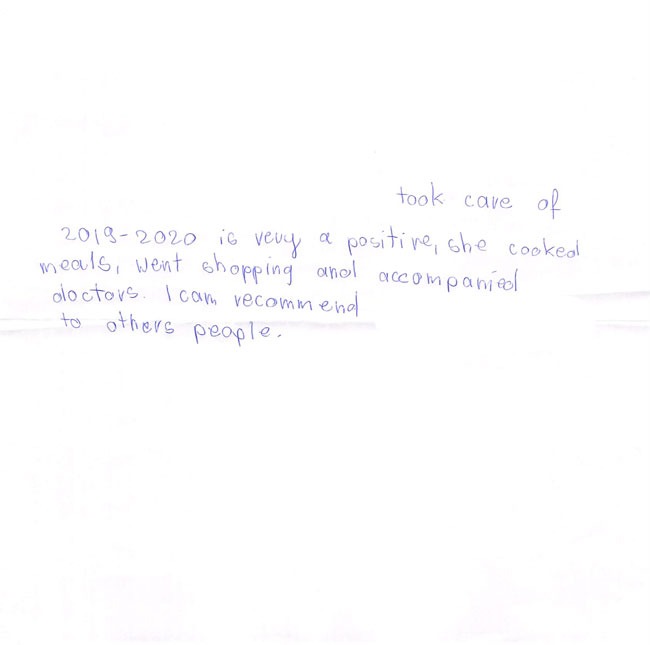 took care of
2019-2020 is very a positive, she cooked
meals, went shopping and accompanied
doctors. I can recommend
to others people.